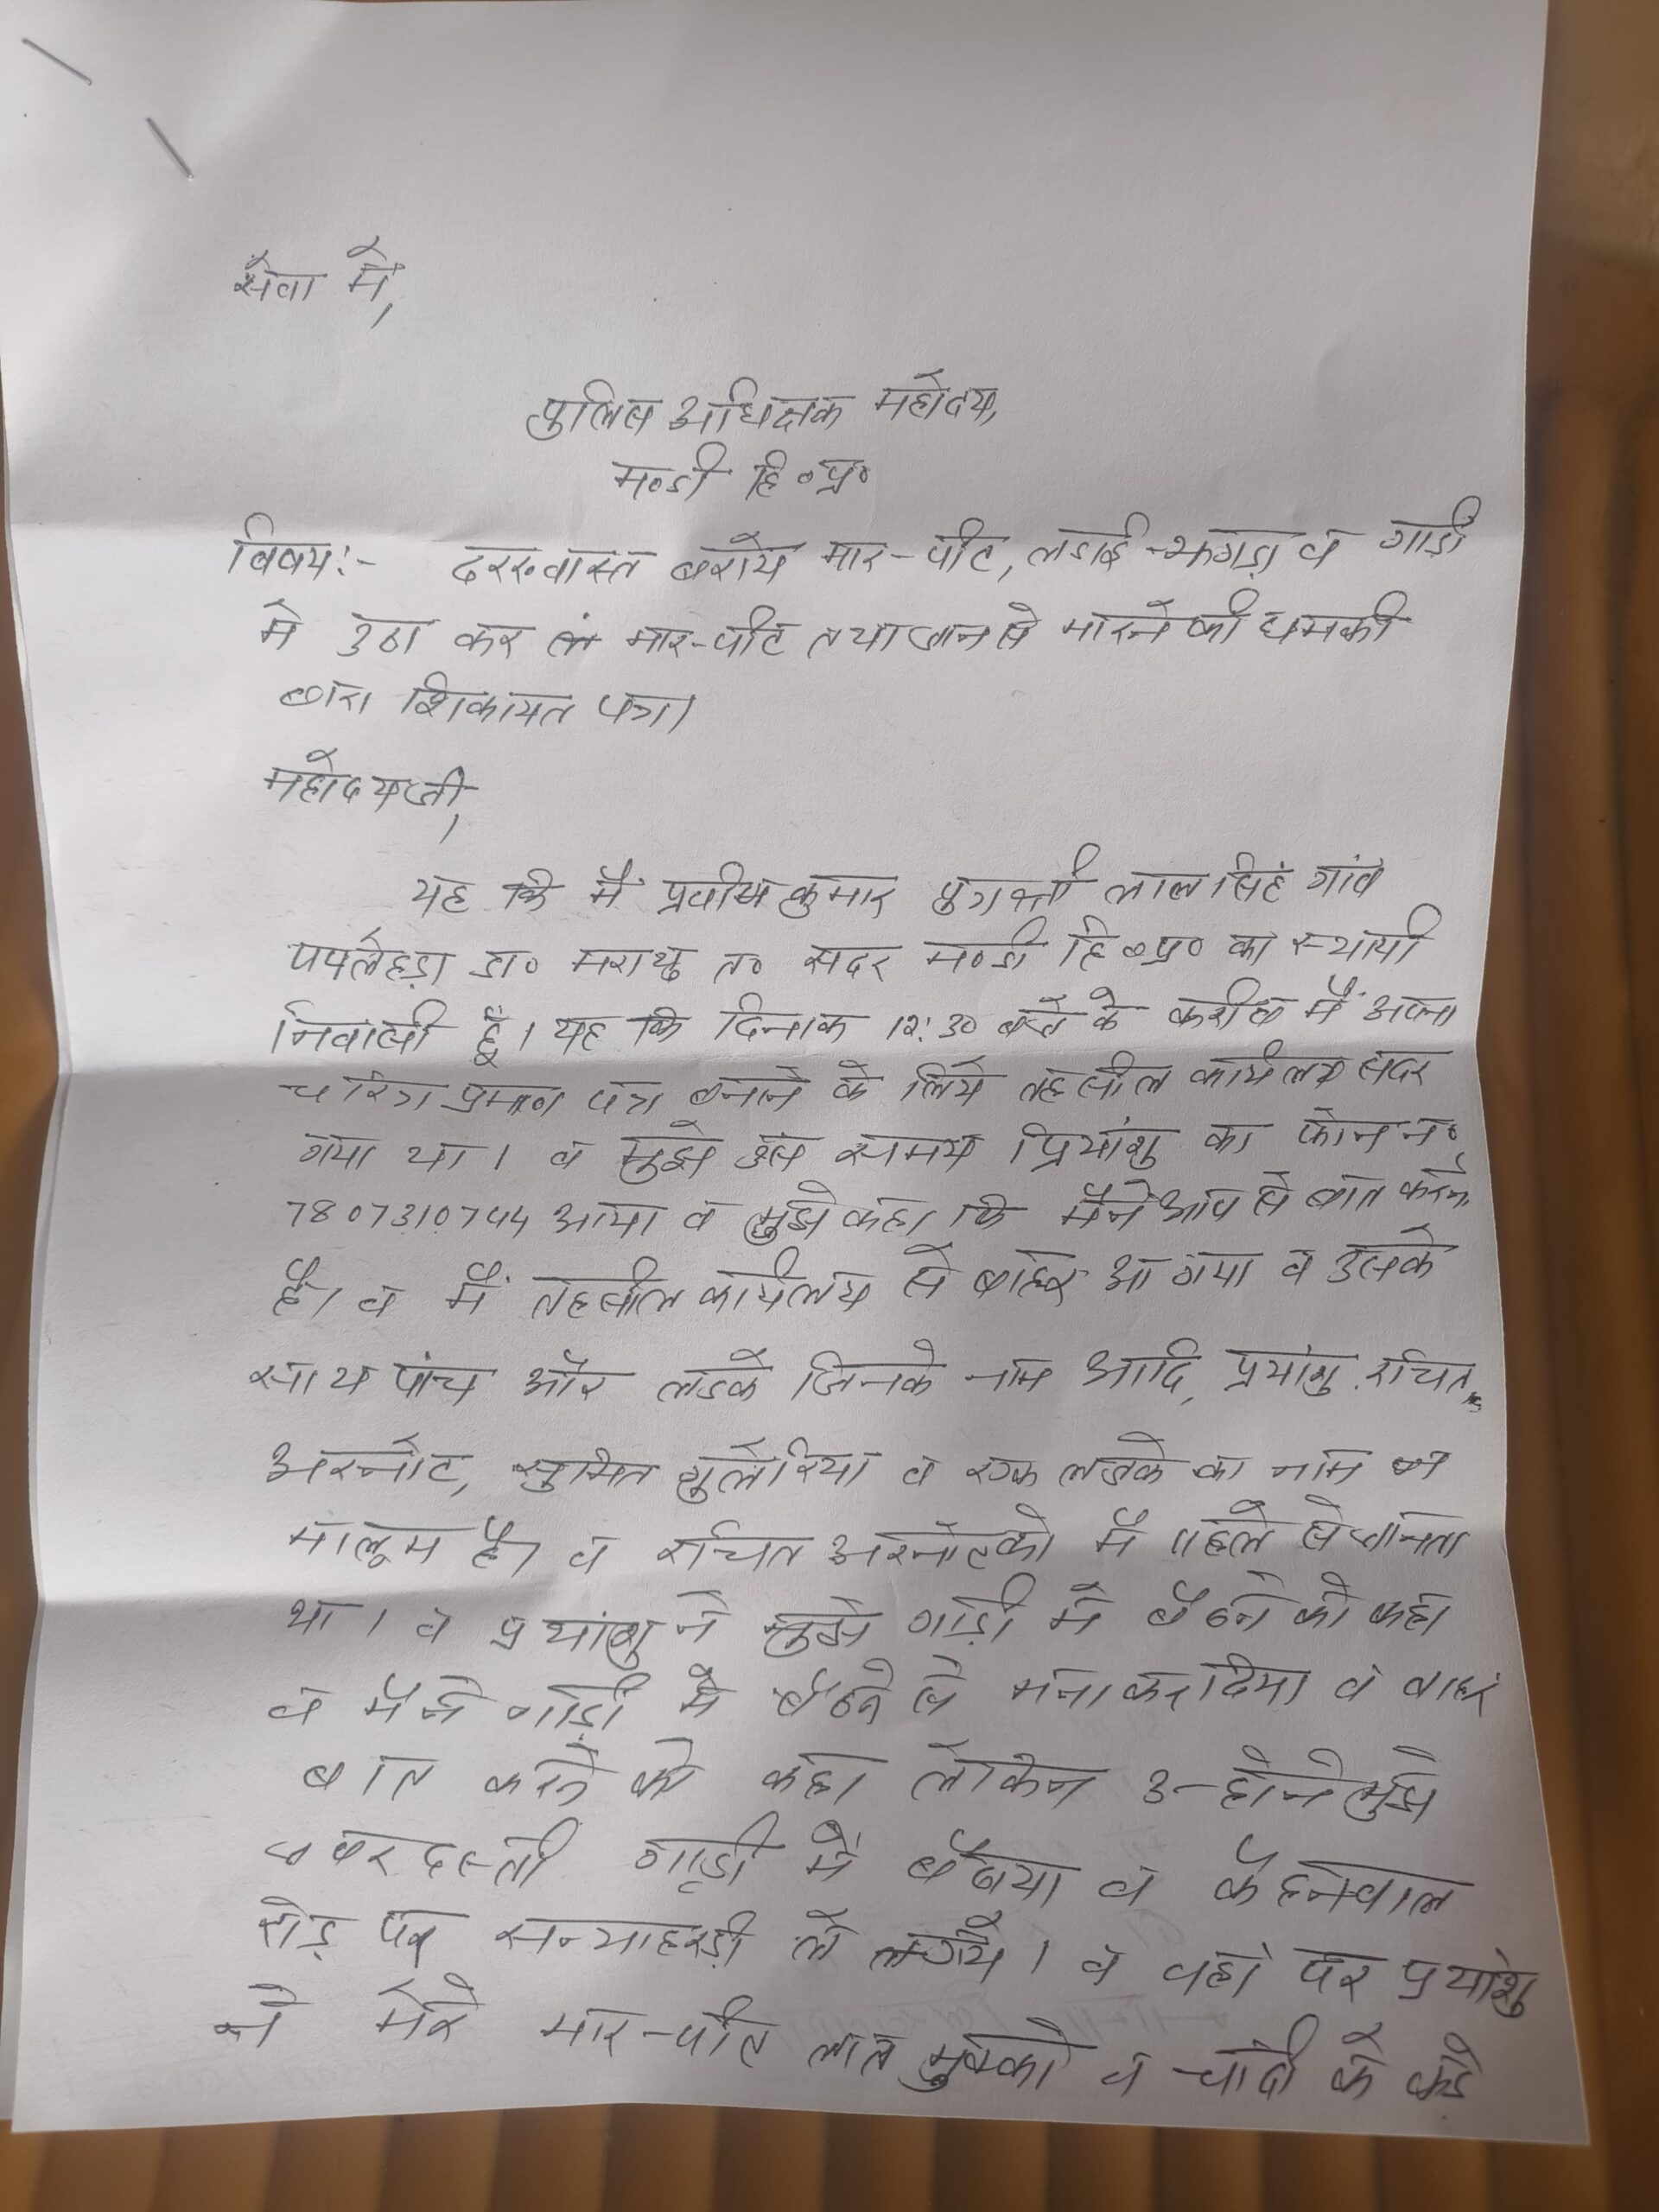 सेवा में,
पुलिस अधिक्षक महोदय,
मण्डी हि०प्र०
विषय:- दरख्वास्त बराये मार-पीट, लडाई-झगड़ा व गाडी
मे उठा कर मार-पीट तथा जान से मारने की धमकी
बारा शिकायत पत्र।
महोदय जी,
यह कि मैं प्रवीण कुमार पुत्र श्री लाल सिहं गांव
पपलेहड़ा डा० मराथु त० सदर मण्डी हि०प्र० का स्थायी
निवासी हूँ। यह कि दिनाक 12:30 बजे के करीब मैं अपना
चरित्र प्रमाण पत्र बनाने के लिये तहसील कार्यलय सदर
गया था। व मुझे उस समय प्रियांशु का फोन न०
7807310744 आया व मुझे कहा कि मैंने आप से बात करनी
है। व मैं तहसील कार्यलय से बाहर आ गया व उसके
साथ पांच और लडके जिनके नाम आदि, प्रयांशु, रचित
अरनोट, सुमित गुलेरिया व एक लडके का नाम न
मालूम है। व रचित अरनोट को मै पहले से जानता
था। व प्रयांशु ने मुझे गाड़ी में बैठने को कहा
व मैंने गाड़ी मे बैठने से मना कर दिया व बाहर
बात करने को कहा लेकिन उन्होने मुझे
जबरदस्ती गाड़ी में बैठाया व केहनवाल
रोड़ पर सन्याहरड़ी ले गये। व वहां पर प्रयांशु
ने मेरे मार-पीट लात मुक्को व चांदी के कडे